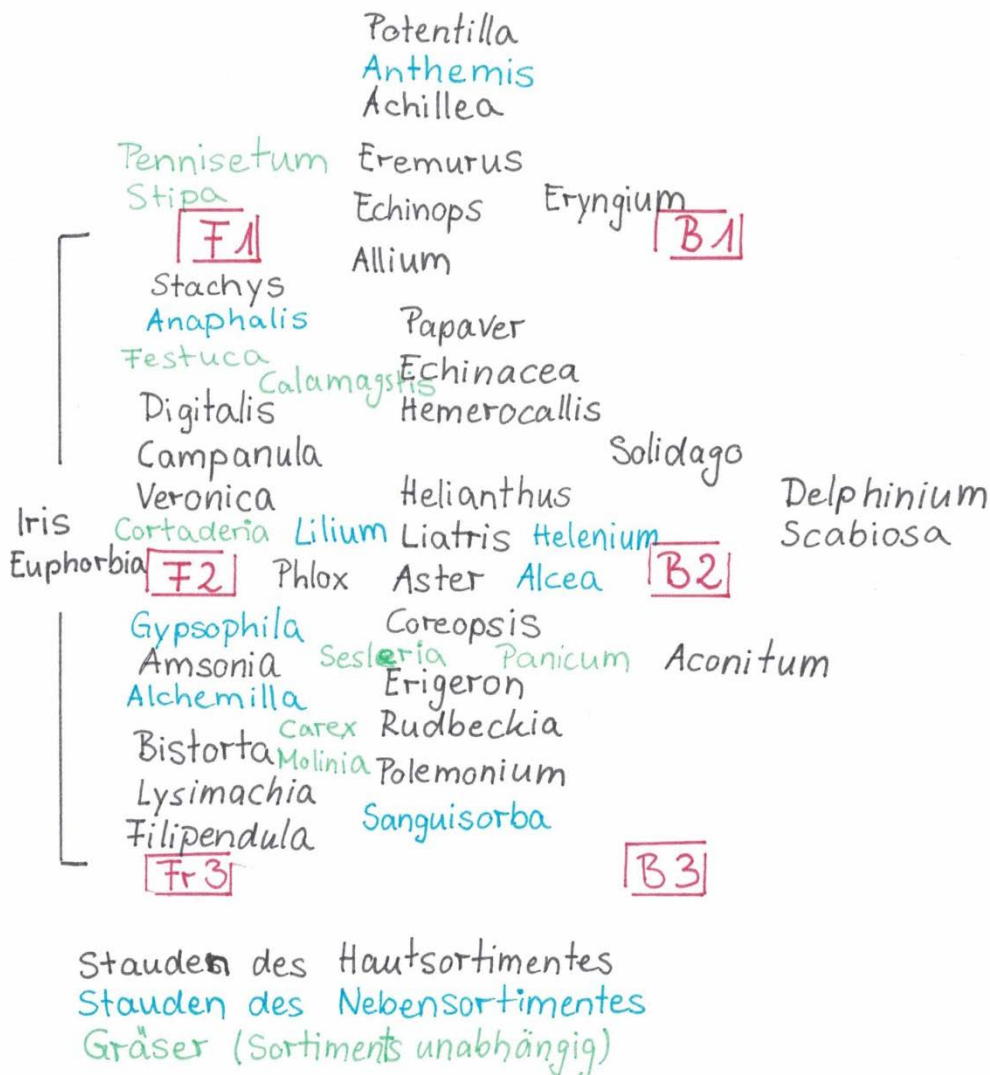 Potentilla
Anthemis
Achillea
Pennisetum Eremurus
Stipa Echinops Eryngium
F1 B1
Allium
Stachys
Anaphalis Papaver
Festuca Echinacea
Calamagstis
Digitalis Hemerocallis
Campanula Solidago
Veronica Helianthus Delphinium
Iris Cortaderia Lilium Liatris Helenium Scabiosa
Euphorbia F2 Phlox Aster Alcea B2
Gypsophila Coreopsis
Amsonia Sesleria Panicum Aconitum
Alchemilla Erigeron
Carex Rudbeckia
Bistorta Molinia Polemonium
Lysimachia
Sanguisorba
Filipendula
Fr3 B3
Stauden des Hautsortimentes
Stauden des Nebensortimentes
Gräser (Sortiments unabhängig)